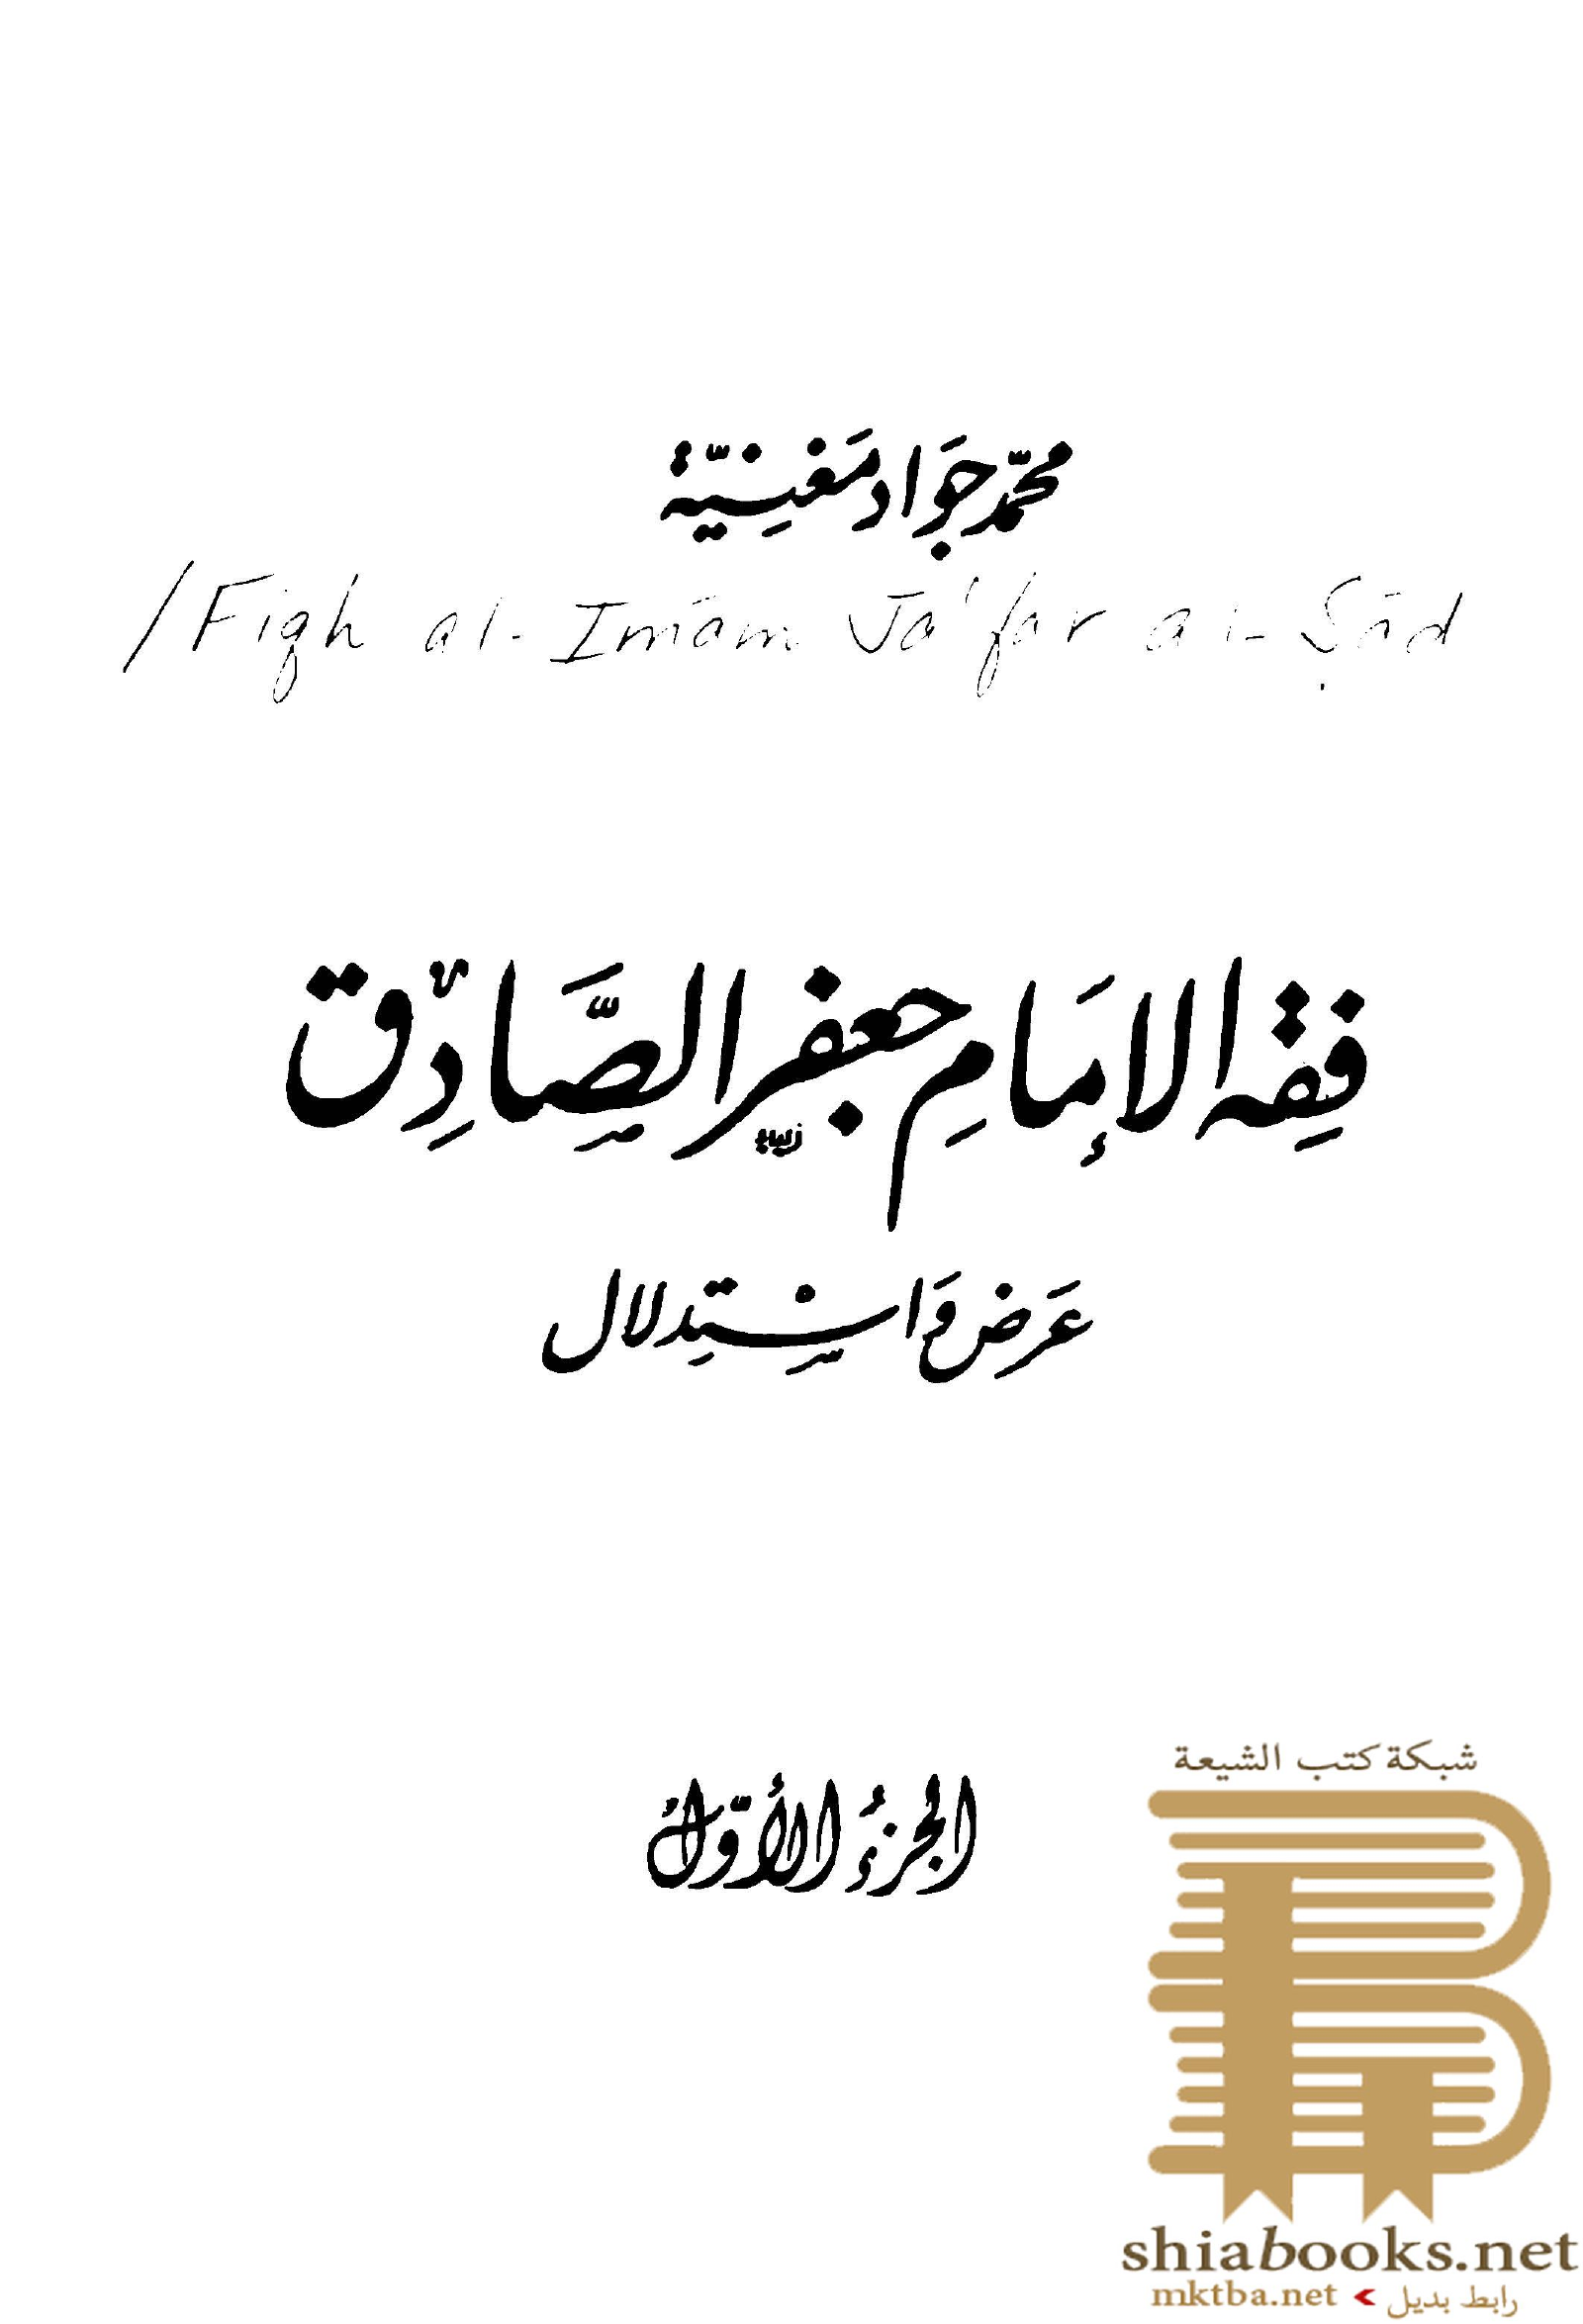 محمّد جَوَاد مَغنِيّة
/Fiqh al-Imām Ja'far al-Ṣād
فِقِه الإمَامِ جعفر الصَّادِق
عَرض وَاسْتِدلال
الجزءُ الأوّل
شبكة كتب الشيعة
shiabooks.net
mktba.net < رابط بديل